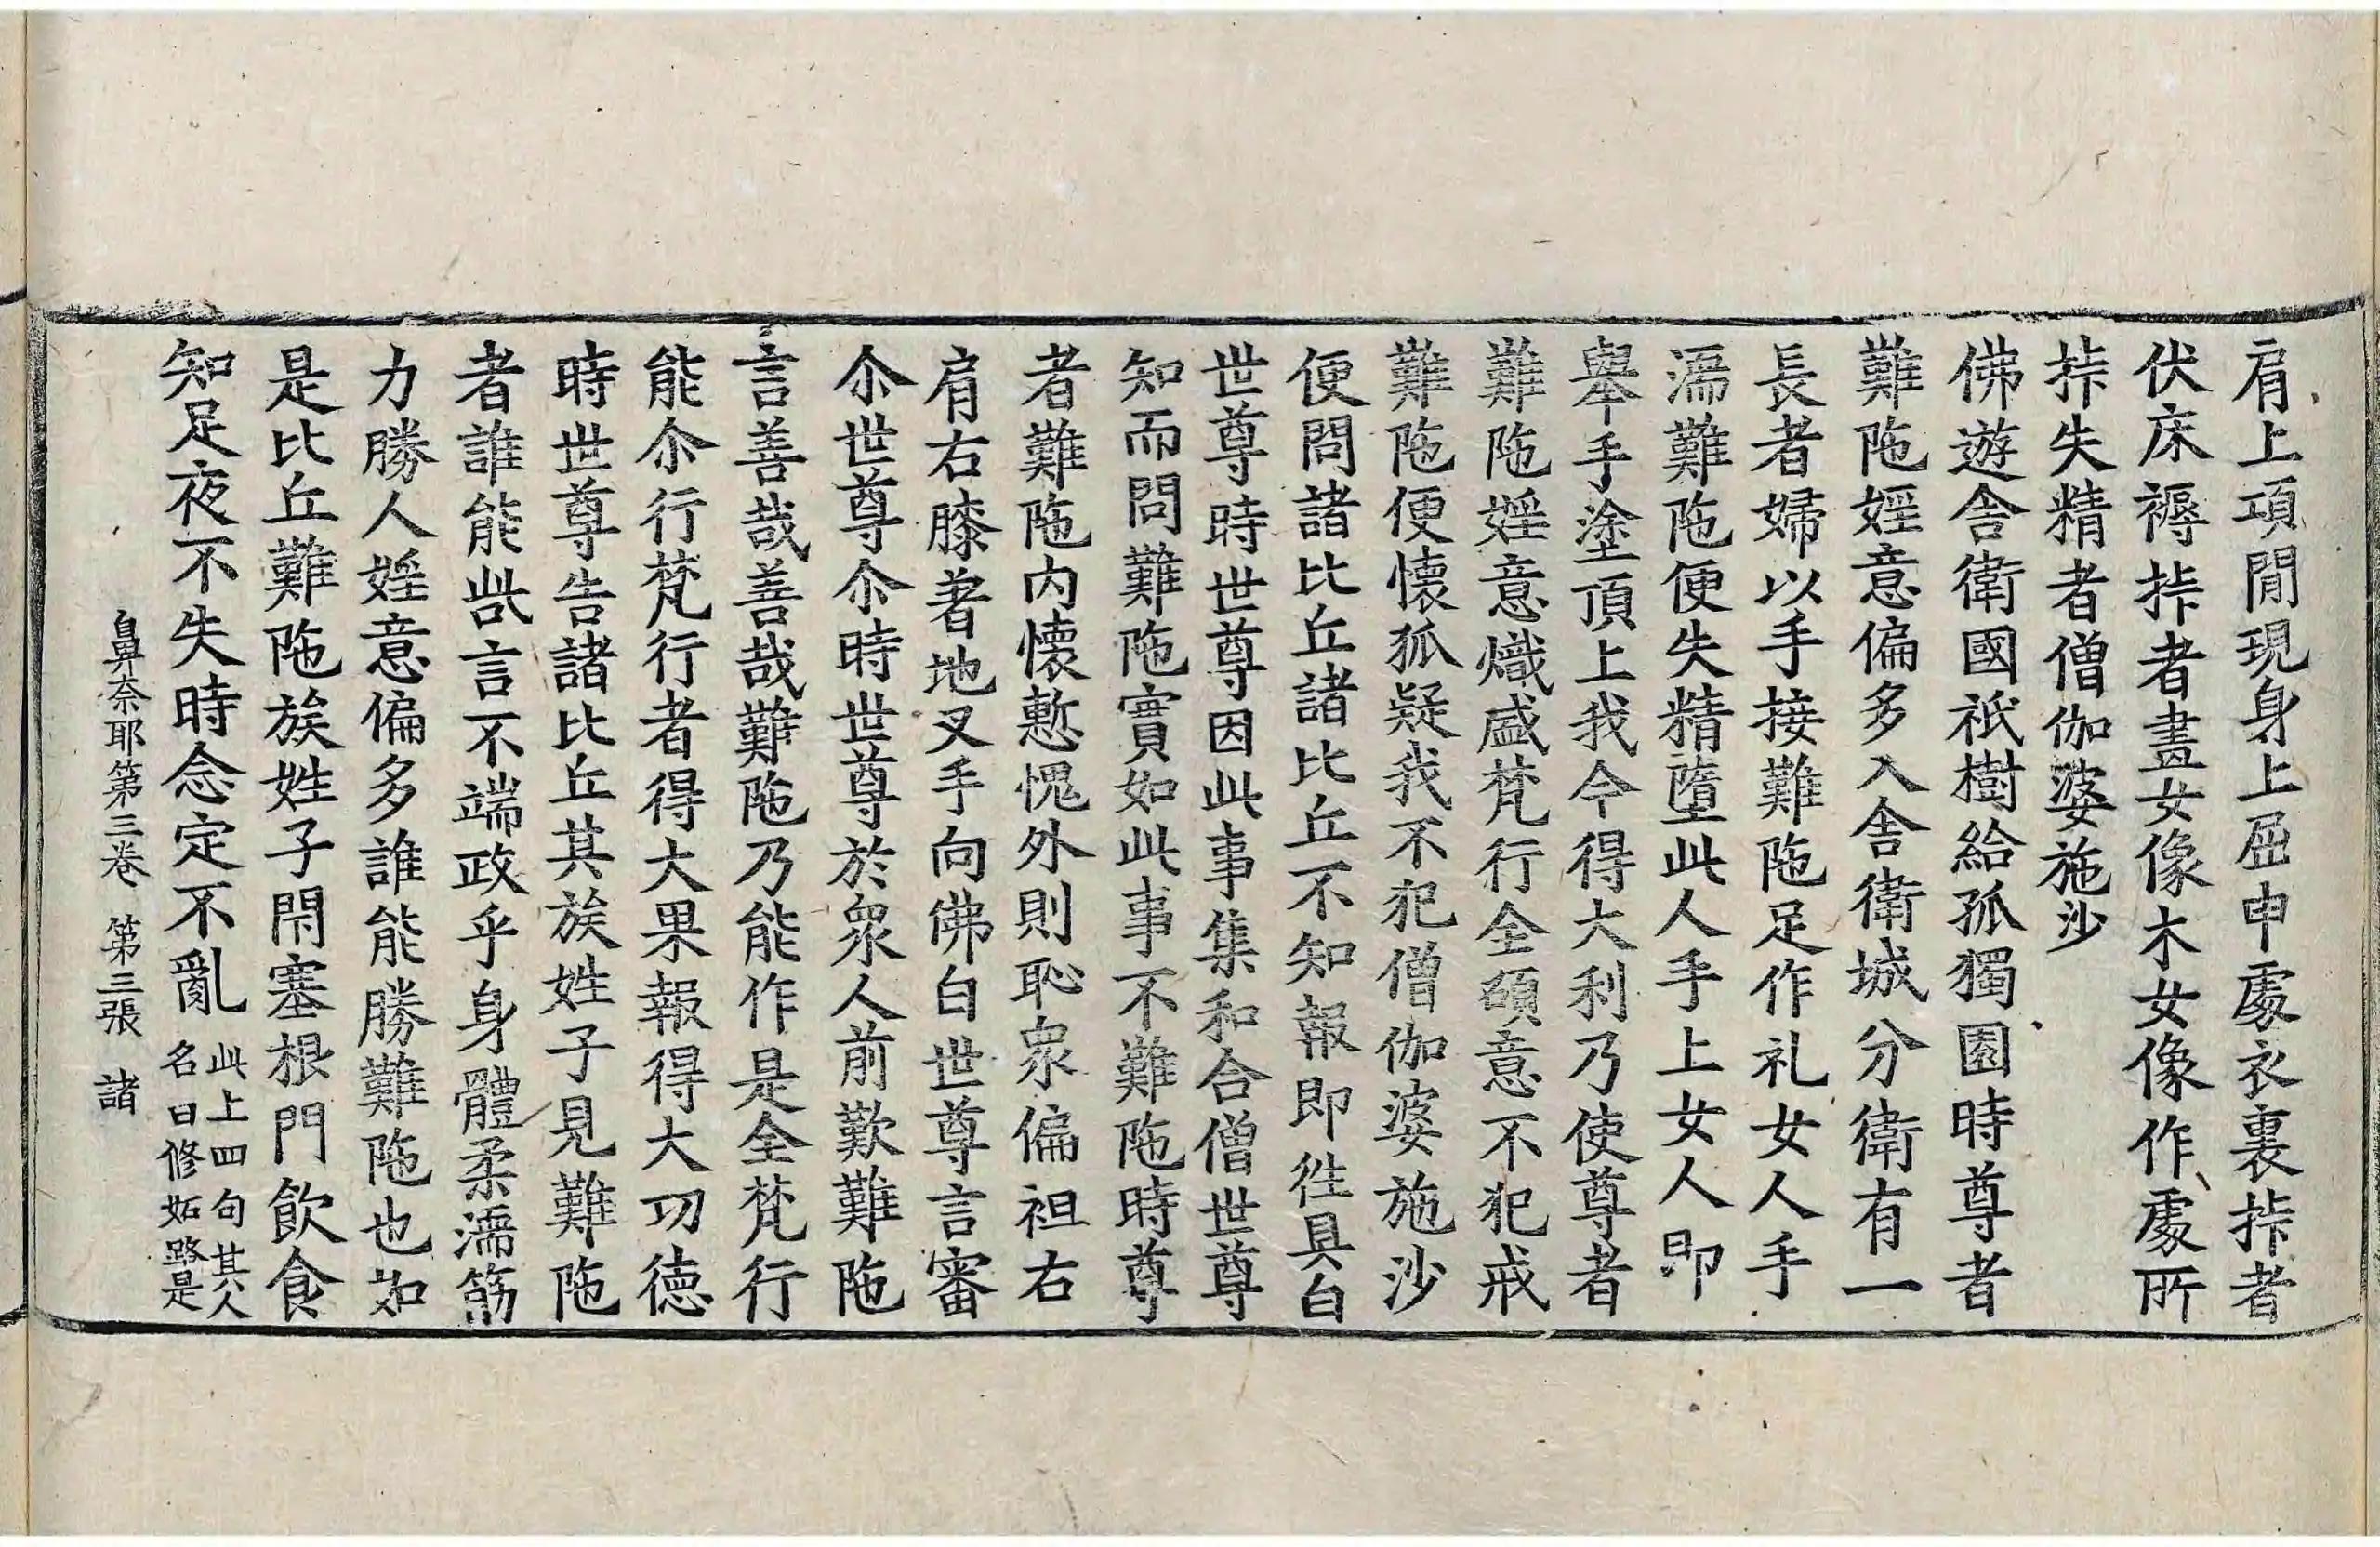 肩上項閒現身上屈申處衣裏挊者
伏床褥挊者畫女像木女像作處所
挊失精者僧伽婆施沙
佛遊舍衛國祇樹給孤獨園時尊者
難陁婬意偏多入舍衛城分衛有一
長者婦以手接難陁足作礼女人手
濡難陁便失精墮此人手上女人即
舉手塗頂上我今得大利乃使尊者
難陁婬意熾盛梵行全碩意不犯戒
難陁便懷狐疑我不犯僧伽婆施沙
便問諸比丘諸比丘不知報即徃具白
世尊時世尊因此事集和合僧世尊
知而問難陁實如此事不難陁時尊
者難陁內懷慙愧外則恥衆偏袒右
肩右膝著地叉手向佛白世尊言審
尒世尊尒時世尊於衆人前歎難陁
言善哉善哉難陁乃能作是全梵行
能尒行梵行者得大果報得大功德
時世尊告諸比丘其族姓子見難陁
者誰能呰言不端政乎身體柔濡筋
力勝人婬意偏多誰能勝難陁也如
是比丘難陁族姓子閇塞根門飲食
知足夜不失時念定不亂此上四句其人名曰修妬路是
鼻奈耶第三卷 第三張 諸